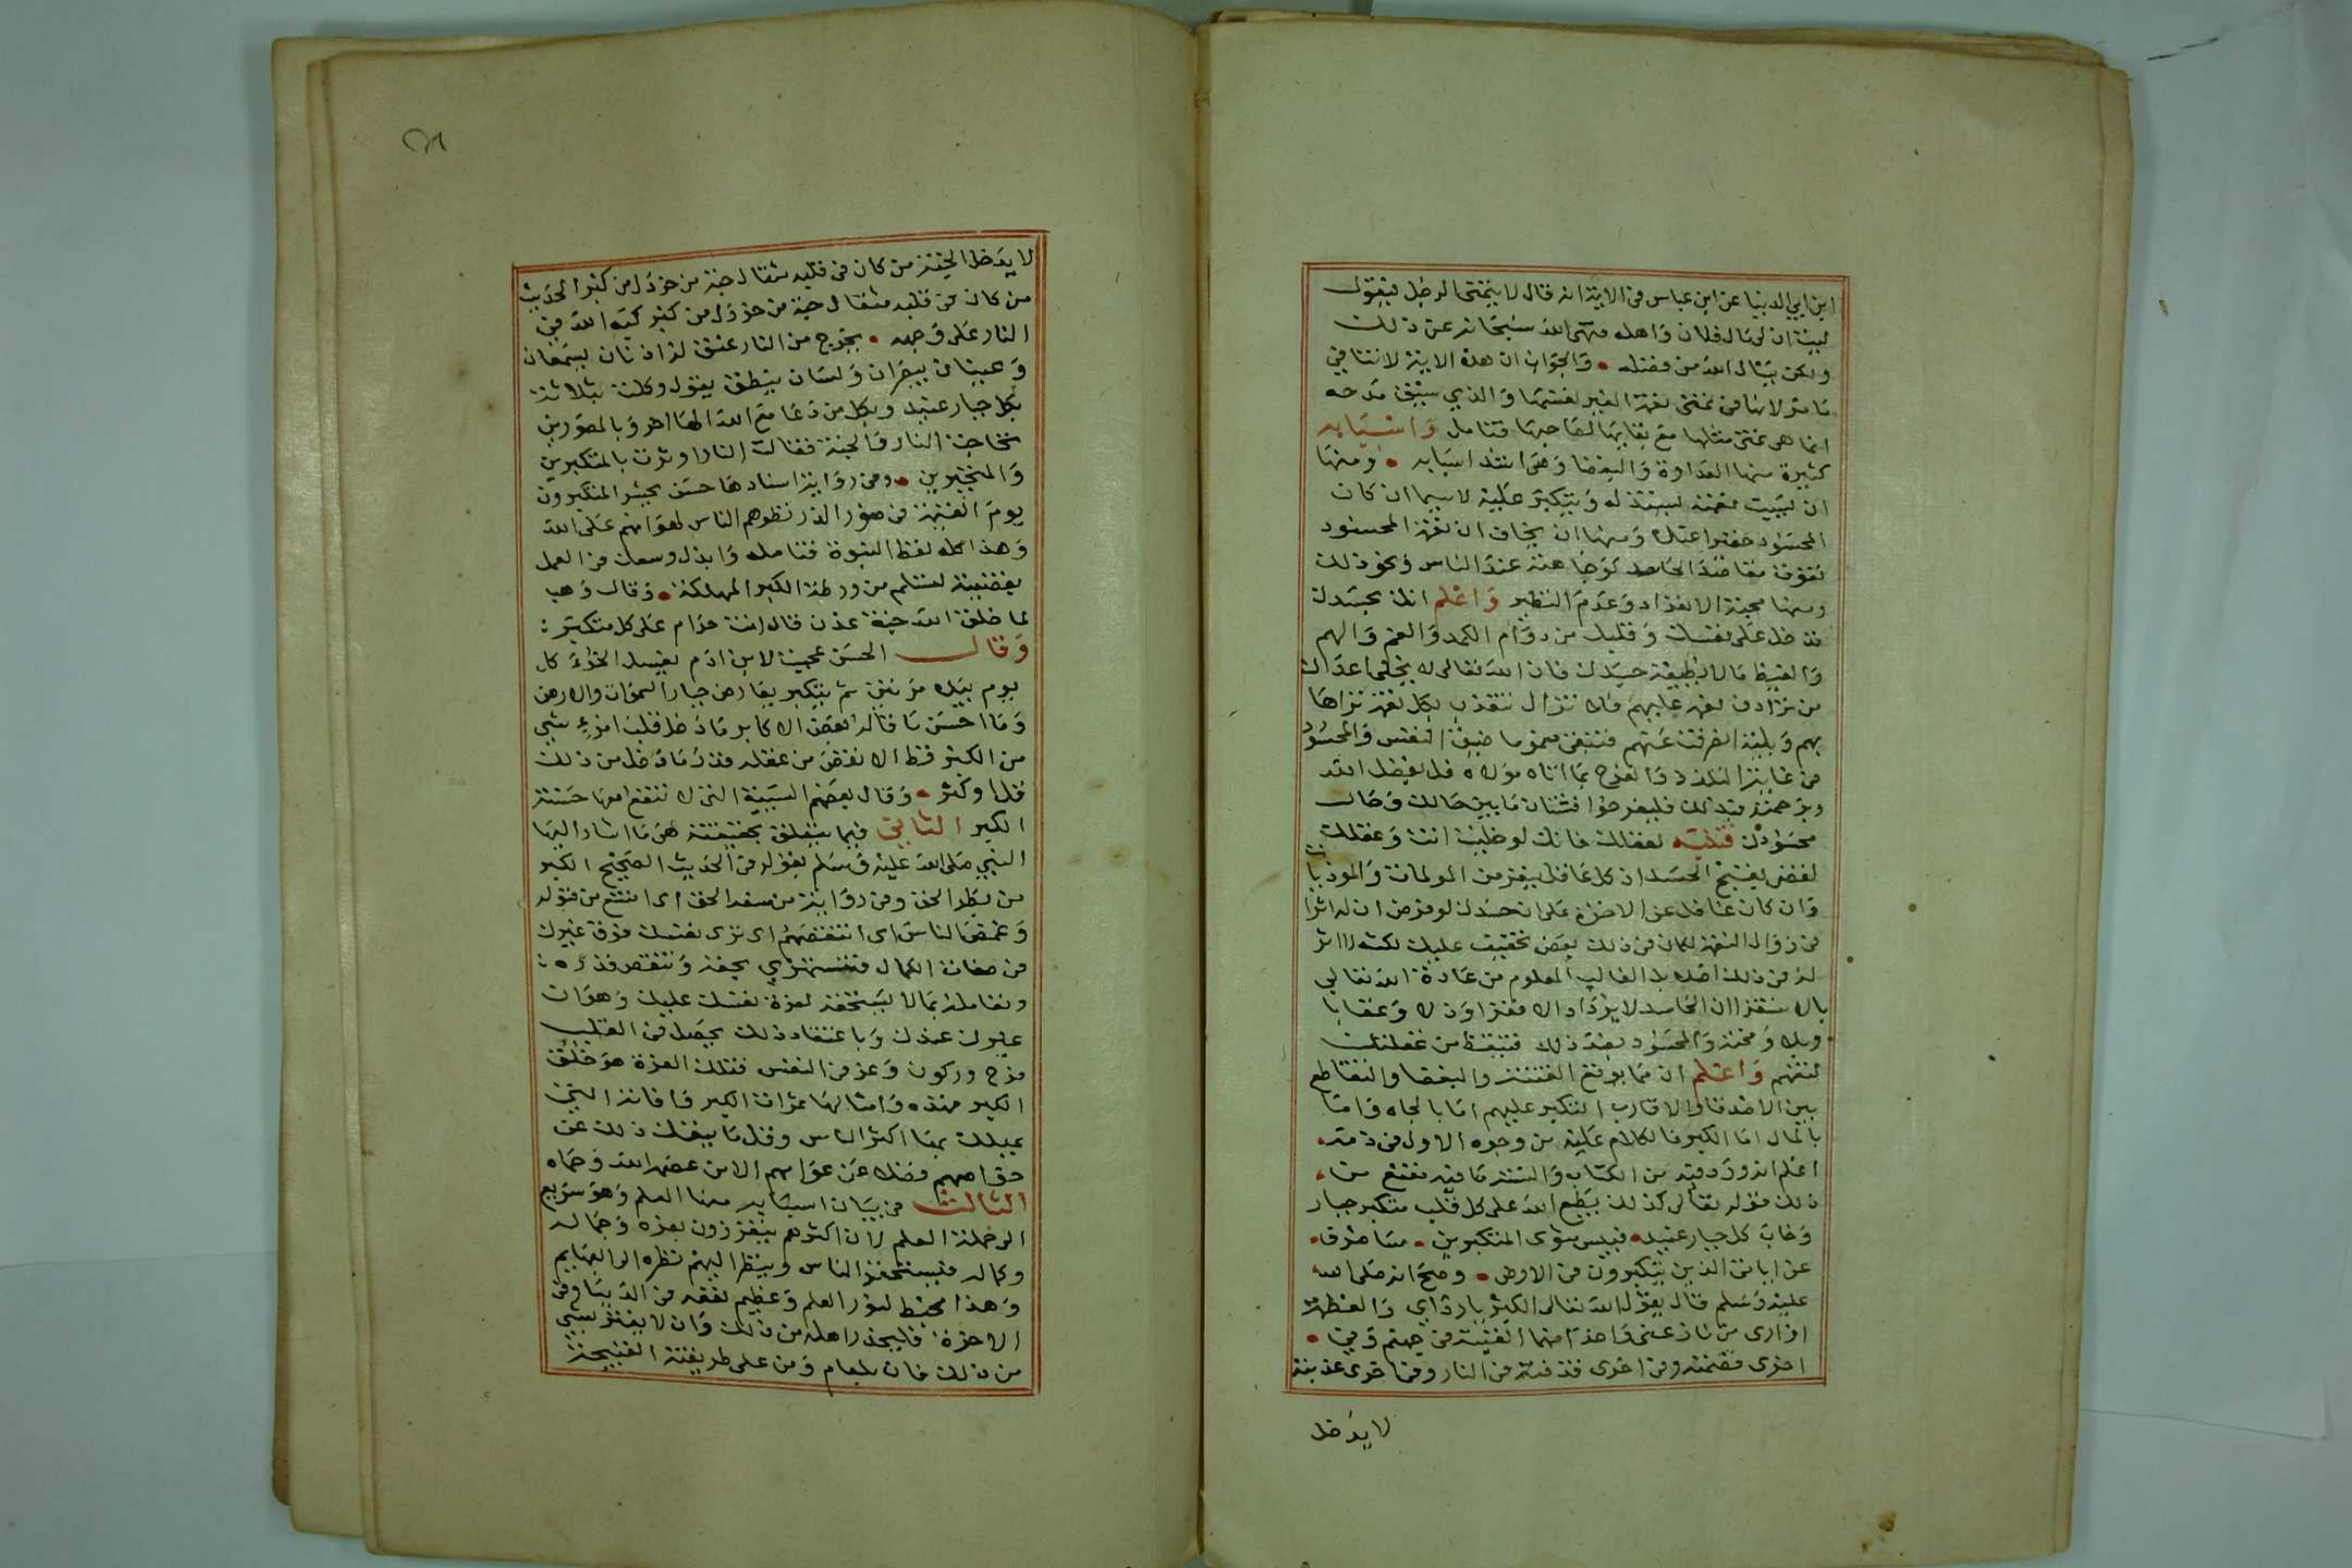 ابن ابي الدنيا عن ابن عباس في الاية انه قال لا يتمنى الرجل فيقول
ليت ان لي مال فلان واهله فنهى الله سبحانه عن ذلك
ولكن يسال الله من فضله • والجواب ان هذه الاية لا تنافي
ما مر لانها في تمني نعمة الغير لفسها والذي سبق مدحه
انما هي تمني مثلها مع بقايها لصاحبها فتامل واسبابه
كثيرة منها العداوة والبغضا وهي اشد اسبابه • ومنها
ان ليت نعمته ليستذله ويتكبر عليه لاسيما ان كان
المحسود حقيرا عنك ومنها ان يخاف ان نعمة المحسود
تفوت مقاصد الحاسد كوجاهته عند الناس ونحو ذلك
ومنها محبة الانفراد وعدم النظير واعلم انك بحسدك
تدخل على نفسك وقلبك من دوام الكمد والغم والهم
والغيظ ما لا تطيقه حسدك فان الله تعالى لم يخلي اعداك
من ترادف نعمه عليهم فلا تزال تتعذب بكل نعمة تراها
بهم وبلية انصرفت عنهم فتبقى مغموما ضيق النفس والمحسود
في غاية التلذذ والفرح بما اتاه مولاه قل بفضل الله
وبرحمته فبذلك فليفرحوا فشتان ما بين حالك وحال
محسودك فتنبه لعقلك فانك لو خليت انت وعقلك
لقضى بقبح الحسد اذ كل عاقل يفر من المولمات والموذيات
وان كان غافل عن الاخرى على ان حسدك لو فرض ان له اثرا
في زوال النعمة لكان في ذلك بعض تخفيف عليك لكنه لا اثر
له في ذلك اصلا بل الغالب المعلوم من عادة الله تعالى
بالاستقرا ان الحاسد لا يزداد الا فقرا وذلا وعقابا
وبلا ومحنة والمحسود بضد ذلك فتيقظ من غفلتك
لتفهم واعلم ان مما يوقع الفتنة والبغضا والتقاطع
بين الاصدقا والاقارب التكبر عليهم اما بالجاه واما
بالمال اما الكبر فالكلام عليه من وجوه الاول في ذمه
اعلم انه ورد فيه من الكتاب والسنة ما فيه مقنع من
ذلك قوله تعالى كذلك يطبع الله على كل قلب متكبر جبار
وخاب كل جبار عنيد • فبيس مثوى المتكبرين • ساصرف
عن اياتي الذين يتكبرون في الارض • وصح انه صلى الله
عليه وسلم قال يقول الله تعالى الكبر يا رداي والعظمة
ازاري من نازعني واحدا منهما القيته في جهنم وفي •
اخرى قصمته وفي اخرى قذفته في النار وفي اخرى عذبته
لا يدخل
لا يدخل الجنة من كان في قلبه مثقال حبة من خردل من كبر الحديث
من كان في قلبه مثقال حبة من خردل من كبر كبه الله في
النار على وجهه • يخرج من النار عنق له اذنان يسمعان
وعينان يبصران ولسان ينطق يقول وكلت بثلاثة
بكل جبار عنيد وبكل من دعا مع الله الها اخر وبالمصورين
تحاجت النار والجنة فقالت النار اوثرت بالمتكبرين
والمتجبرين • وفي رواية اسنادها حسن يحشر المتكبرون
يوم القيمة في صور الذر تطوهم الناس لهوانهم على الله
وهذا كله لفظ النبوة فتامله وابذل وسعك في العمل
بقضيته لتسلم من ورطة الكبر المهلكة • وقال وهب
لما خلق الله جنة عدن قال انت حرام على كل متكبر :
وقال الحسن عجبت لابن ادم يغسل الخراء كل
يوم بيده مرتين ثم يتكبر يعارض جبار السموات والارض
وما احسن ما قاله بعض الاكابر ما دخل قلب امرء شي
من الكبر قط الا نقص من عقله قدر ما دخل من ذلك
قل او كثر • وقال بعضهم السيية التي لا تنفع معها حسنة
الكبر الثاني فيما يتعلق بحقيقته هي ما اشار اليها
النبي صلى الله عليه وسلم بقوله في الحديث الصحيح الكبر
من بطر الحق وفي رواية من سفه الحق اى امتنع من قبوله
وغمص الناس اى انتقصهم اى ترى نفسك فوق غيرك
في صفات الكمال فتستهزي بحقه وتنتقص قدره :
وتعامله بما لا يستحقه لعزة نفسك عليك وهوان
غيرك عندك وباعتقاد ذلك يحصل في القلب
فرح وركون وعز في النفس فتلك العزة هو خلق
الكبر فهذه وامثالها ثمرات الكبر وافاته التي
يهلك بها اكثر الناس وقل ما ينفك ذلك عن
خواصهم فضلا عن عوامهم الا من عصمه الله وحماه
الثالث في بيان اسبابه منها العلم وهو سريع
الى حملة العلم لان اكثرهم يتعززون بعزه وجماله
وكماله فيستحقر الناس وينظر اليهم نظره الى البهايم
وهذا محبط لنور العلم وعظيم نفعه في الدنيا وفي
الاخرة فليحذر اهله من ذلك وان لا يغتر بشي
من ذلك فان بلعام ومن على طريقته القبيحة